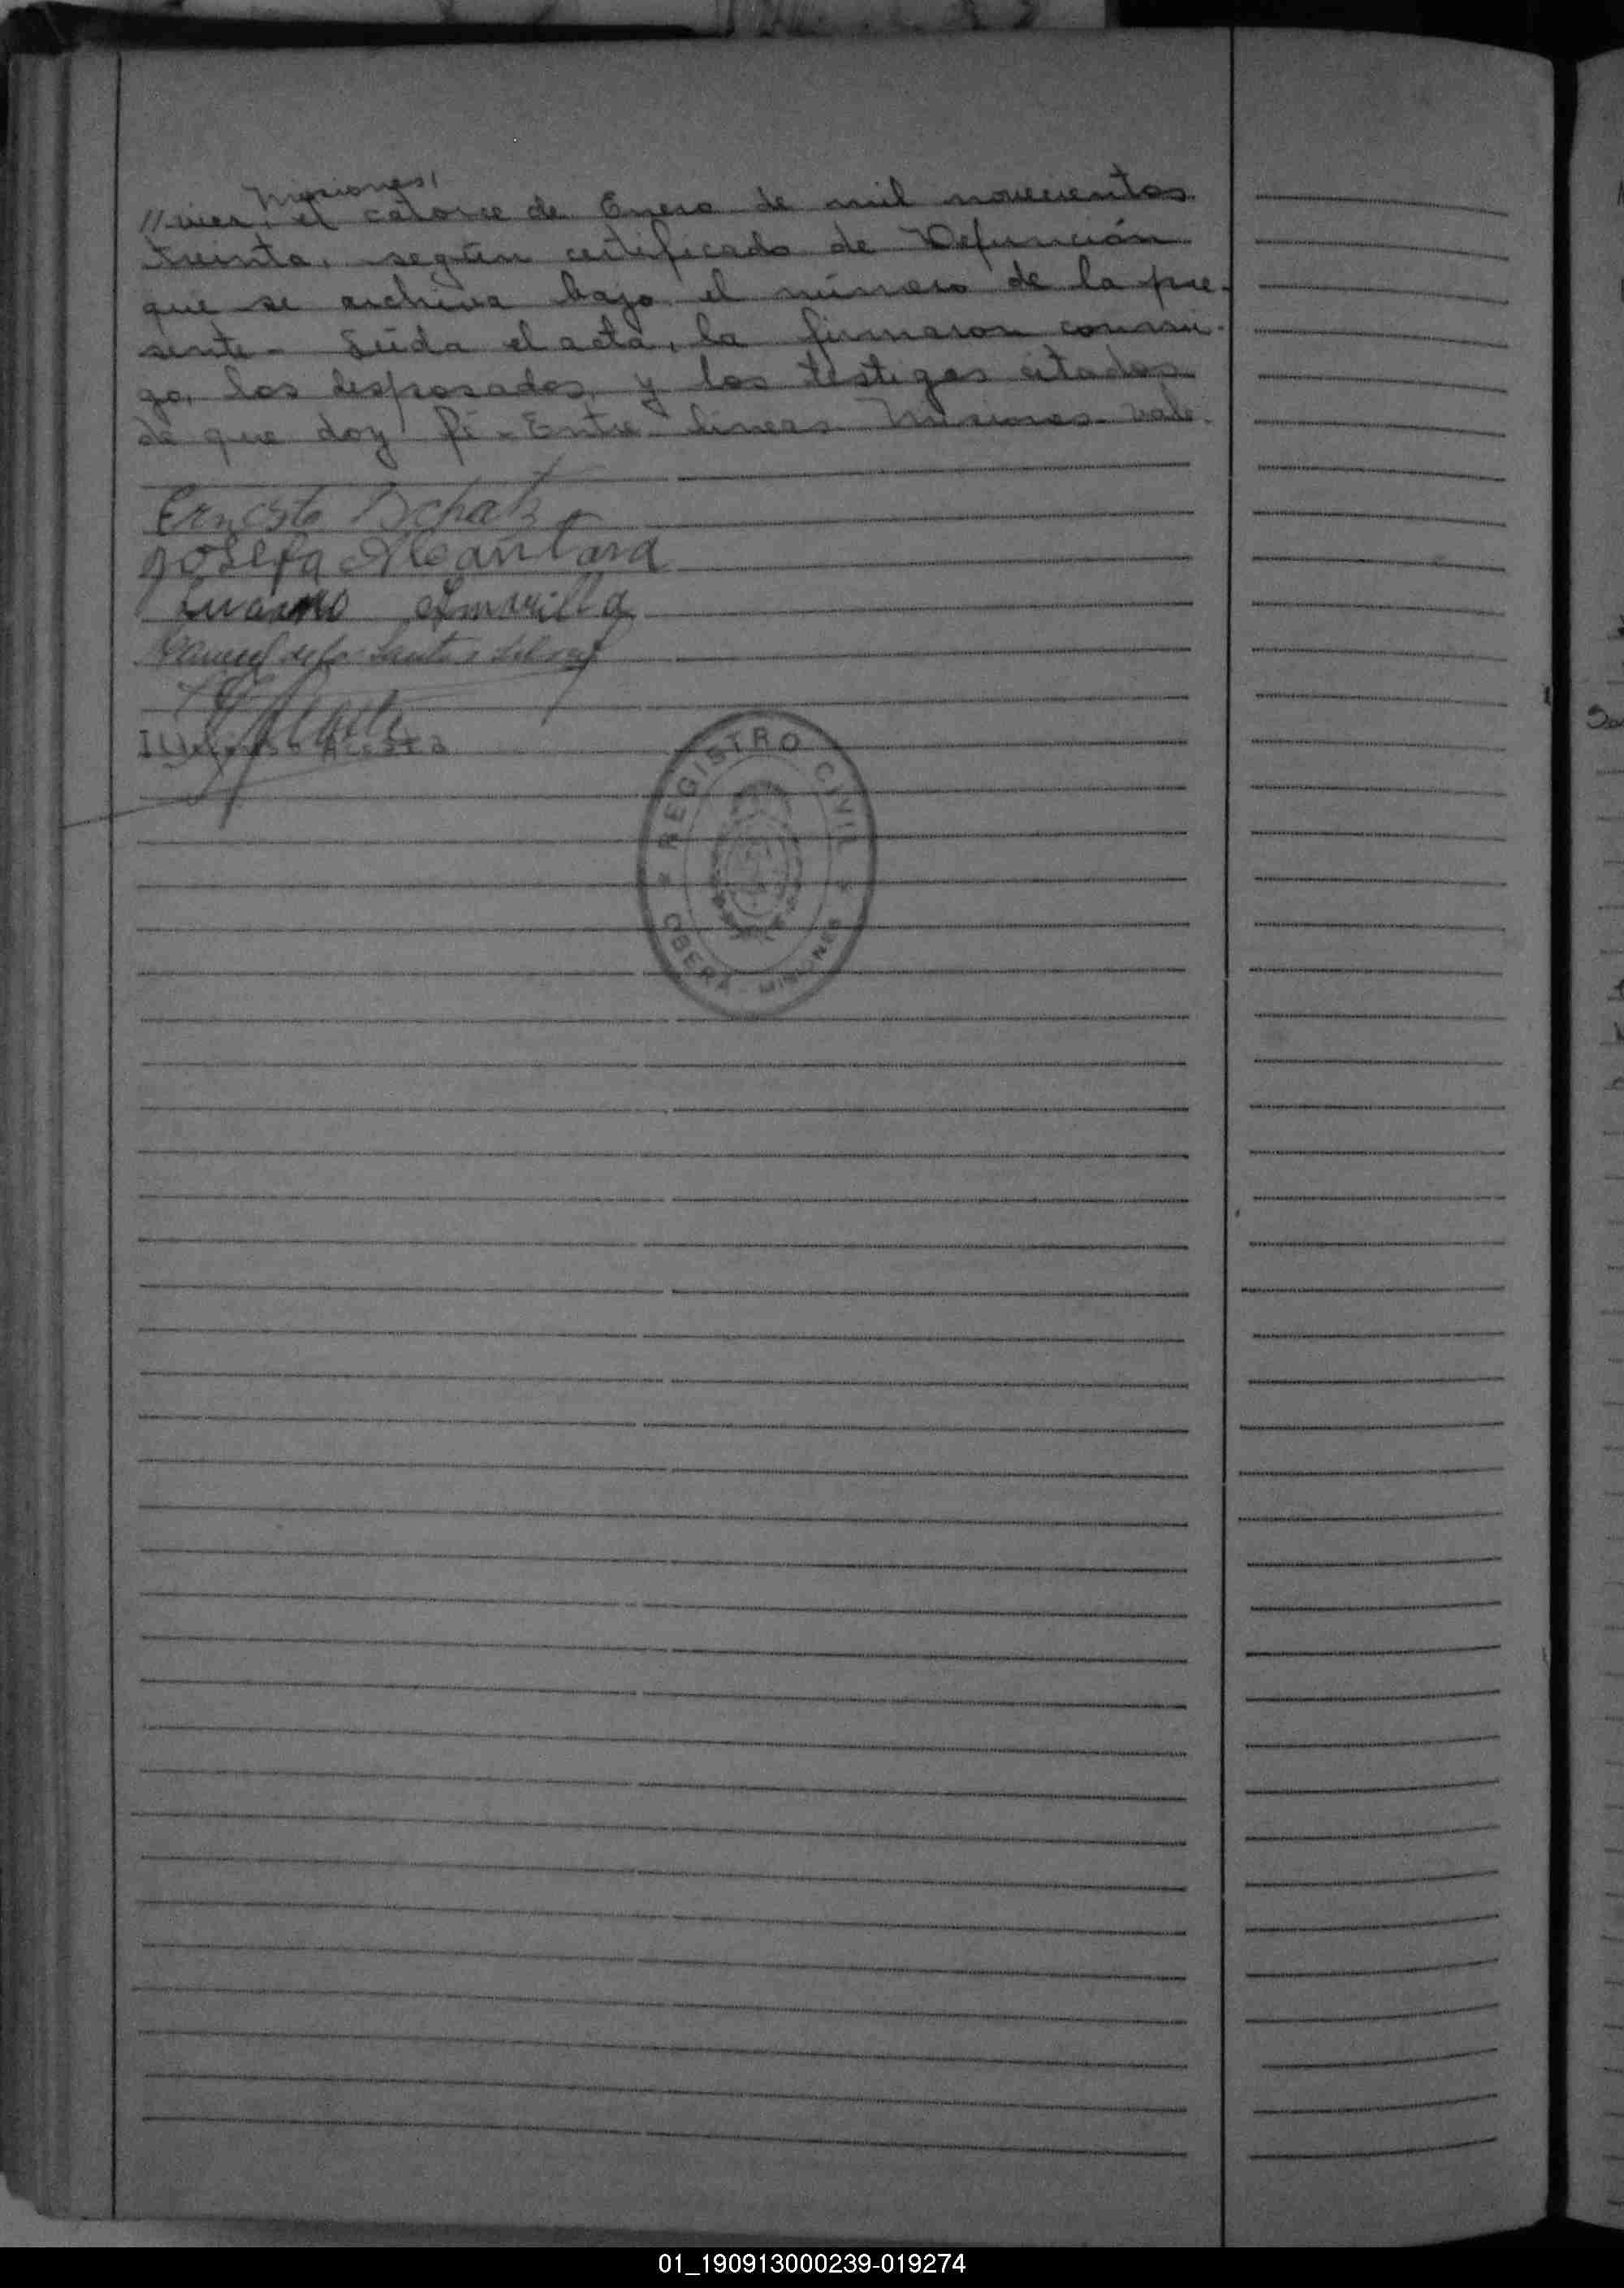 Misiones,
//vier, el catorce de Enero de mil novecientos
treinta, según certificado de Defunción
que se archiva bajo el número de la pre-
sente- Leída el acta, la firmaron conmi-
go, los desposados, y los testigos citados
de que doy fé - Entre líneas Misiones - vale.
Ernesto Schatz
Josefa Alcantara
Luciano Amarilla
Manuel de los Santos
Ildefonso Acosta
REGISTRO CIVIL
OBERÁ - MISIONES
So
01_190913000239-019274